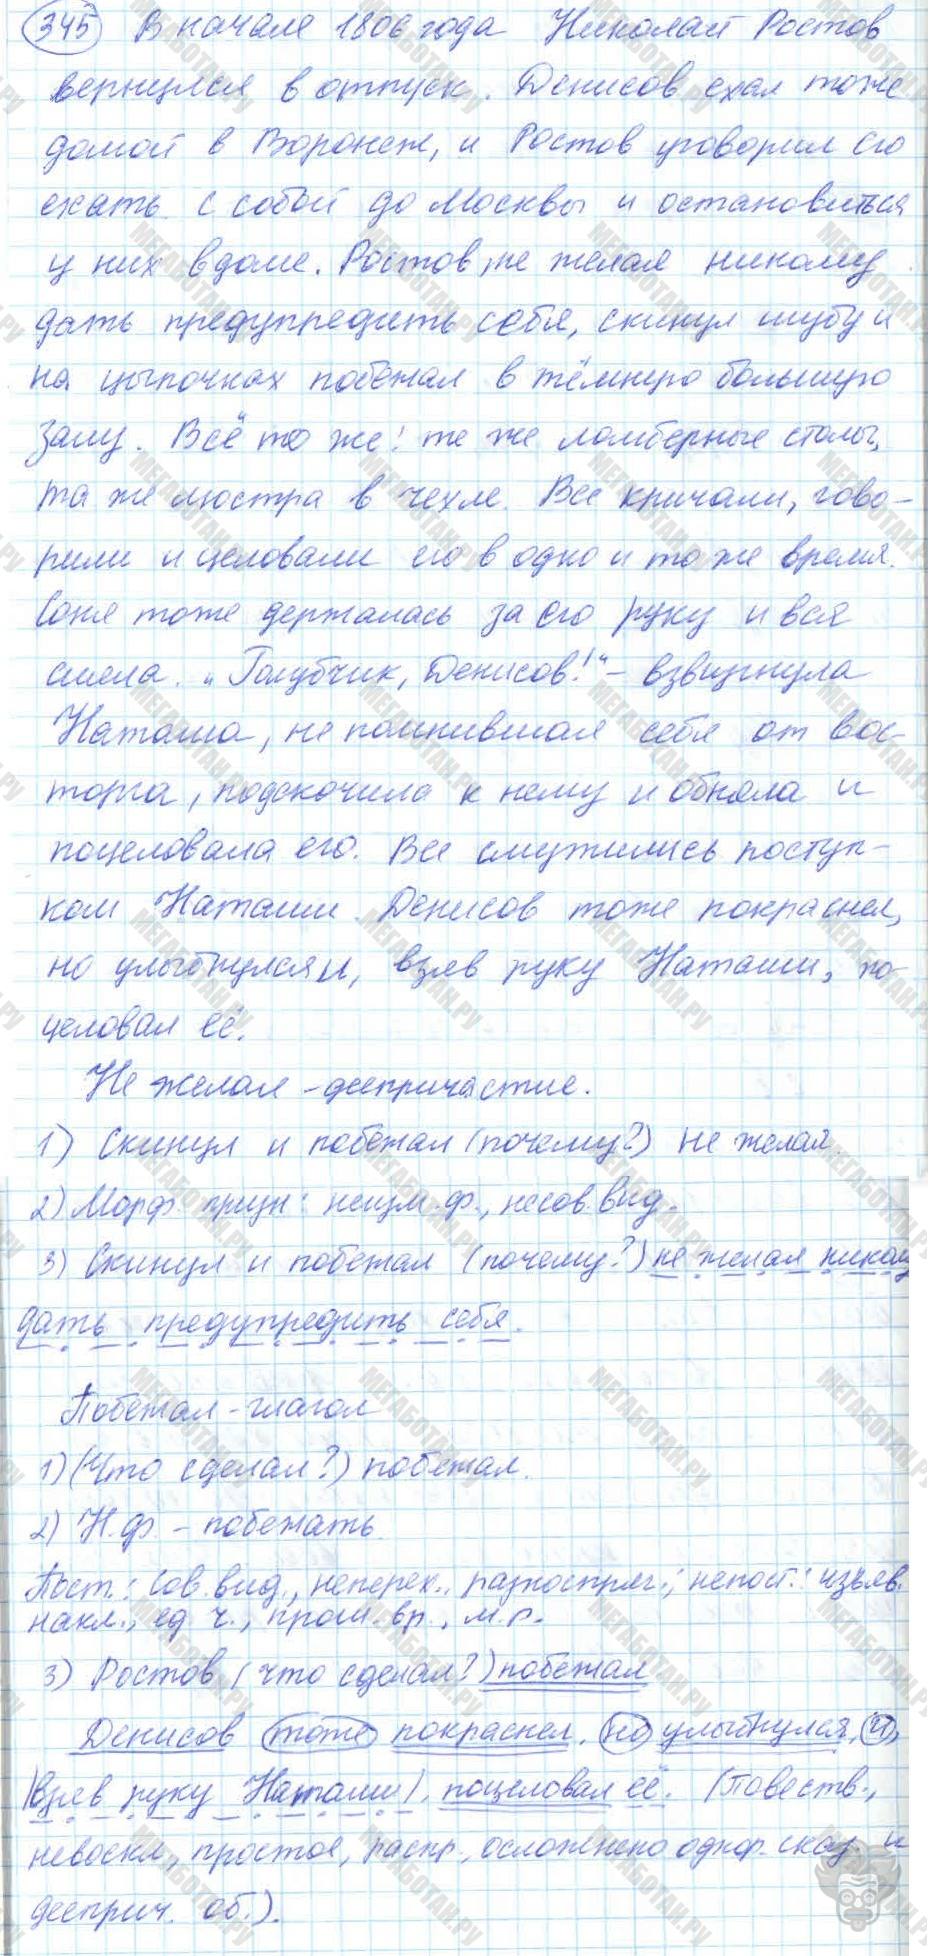 345 В начале 1806 года Николай Ростов
вернулся в отпуск. Денисов ехал тоже
домой в Воронеж, и Ростов уговорил его
ехать с собой до Москвы и остановиться
у них в доме. Ростов, не желая никому
дать предупредить себя, скинул шубу и
на цыпочках побежал в тёмную большую
залу. Всё то же: те же ломберные столы,
та же люстра в чехле. Все кричали, гово-
рили и целовали его в одно и то же время.
Соня тоже держалась за его руку и вся
сияла. „Голубчик, Денисов!“ – взвизгнула
Наташа, не помнившая себя от вос-
торга, подскочила к нему и обняла и
поцеловала его. Все смутились поступ-
ком Наташи. Денисов тоже покраснел,
но улыбнулся и, взяв руку Наташи, по-
целовал её.
Не желая – деепричастие.
1) Скинул и побежал (почему?) не желая.
2) Морф. призн: неизм. ф., несов. вид.
3) Скинул и побежал (почему?) не желая никому
дать предупредить себя.
Побежал – глагол
1) (Что сделал?) побежал.
2) Н.ф. – побежать.
Пост.: сов. вид., неперех., разноспряг.; непост.: изъяв.
накл., ед. ч., прош. вр., м. р.
3) Ростов (что сделал?) побежал.
Денисов тоже покраснел, но улыбнулся, и,
|взяв руку Наташи|, поцеловал её. (Повеств.,
невоскл, простое, распр., осложнено однор. сказ. и
дееприч. об.).
МЕГАБОТАН.РУ